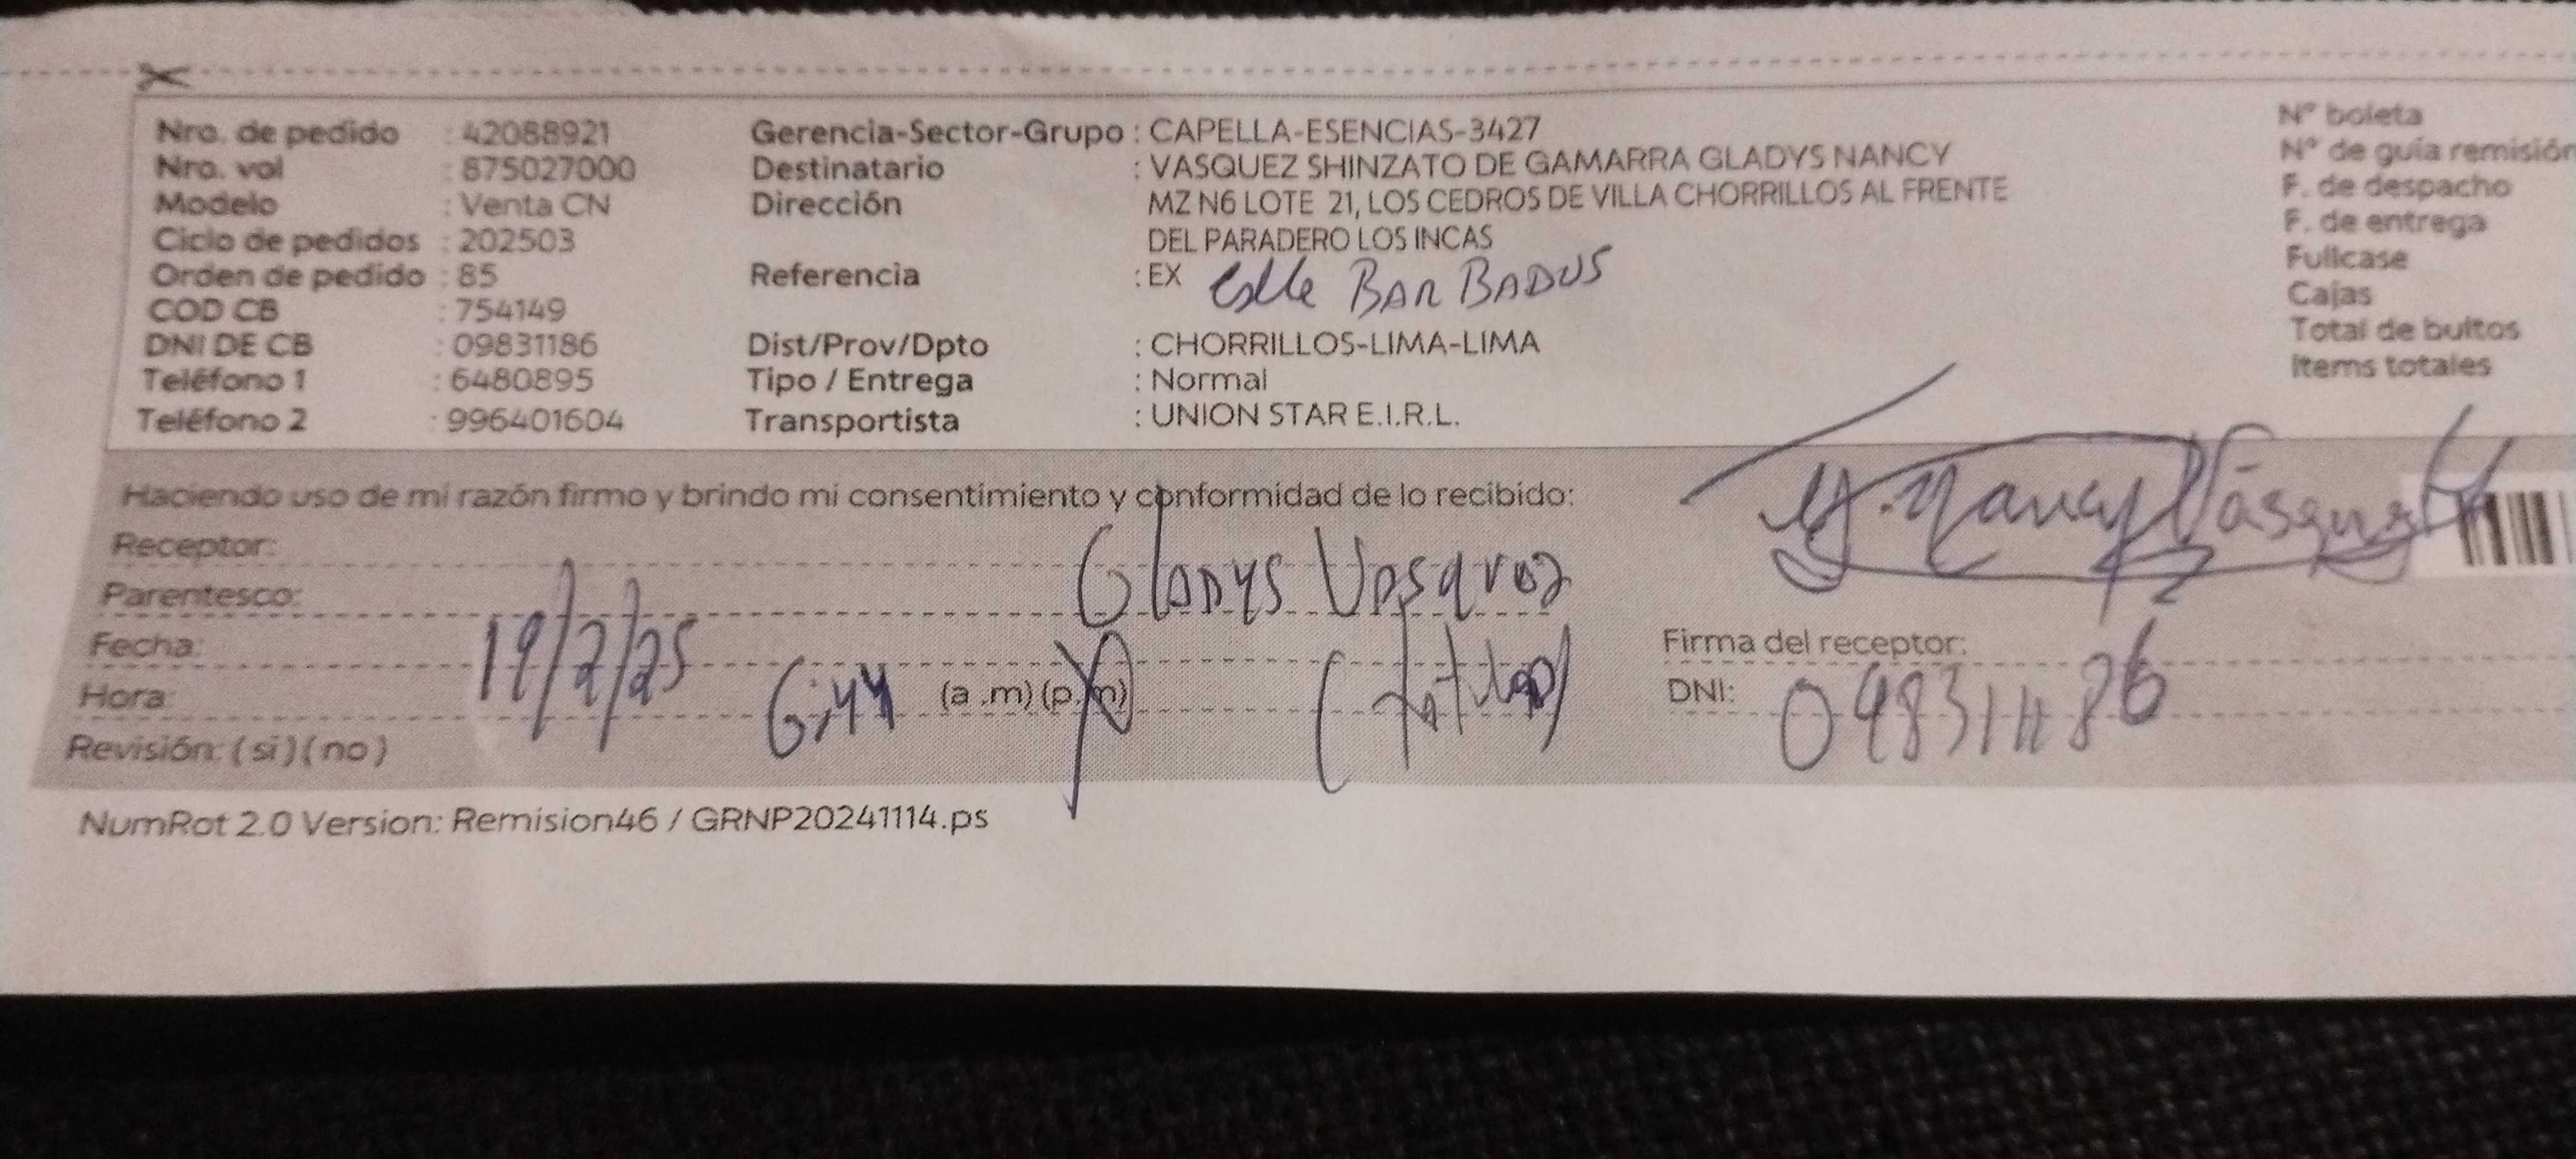 Nro. de pedido : 42088921 Gerencia-Sector-Grupo : CAPELLA-ESENCIAS-3427 N° boleta
Nro. vol : 875027000 Destinatario : VASQUEZ SHINZATO DE GAMARRA GLADYS NANCY N° de guía remisión
Modelo : Venta CN Dirección MZ N6 LOTE 21, LOS CEDROS DE VILLA CHORRILLOS AL FRENTE F. de despacho
Ciclo de pedidos : 202503 DEL PARADERO LOS INCAS F. de entrega
Orden de pedido : 85 Referencia : EX Calle BARBADUS Fullcase
COD CB : 754149 Cajas
DNI DE CB : 09831186 Dist/Prov/Dpto : CHORRILLOS-LIMA-LIMA Total de bultos
Teléfono 1 : 6480895 Tipo / Entrega : Normal Items totales
Teléfono 2 : 996401604 Transportista : UNION STAR E.I.R.L.
Haciendo uso de mi razón firmo y brindo mi consentimiento y conformidad de lo recibido:
G. Nancy Vásquez
Receptor: Gladys Vasquez
Parentesco: (titular)
Fecha: 19/2/25 Firma del receptor:
Hora: 6:44 (a .m) (p.m) DNI: 09831186
Revisión: ( si ) ( no )
NumRot 2.0 Version: Remision46 / GRNP20241114.ps